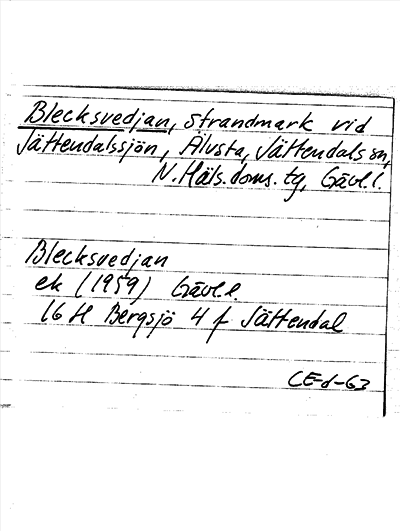 Blecksvedjan, strandmark vid
Jättendalssjön, Älvsta, Jättendals sn,
N. Häls. doms. tg, Gävl. l.
Blecksvedjan
ek (1959) Gävl. l.
16 H Bergsjö 4 f Jättendal
CE-d-63